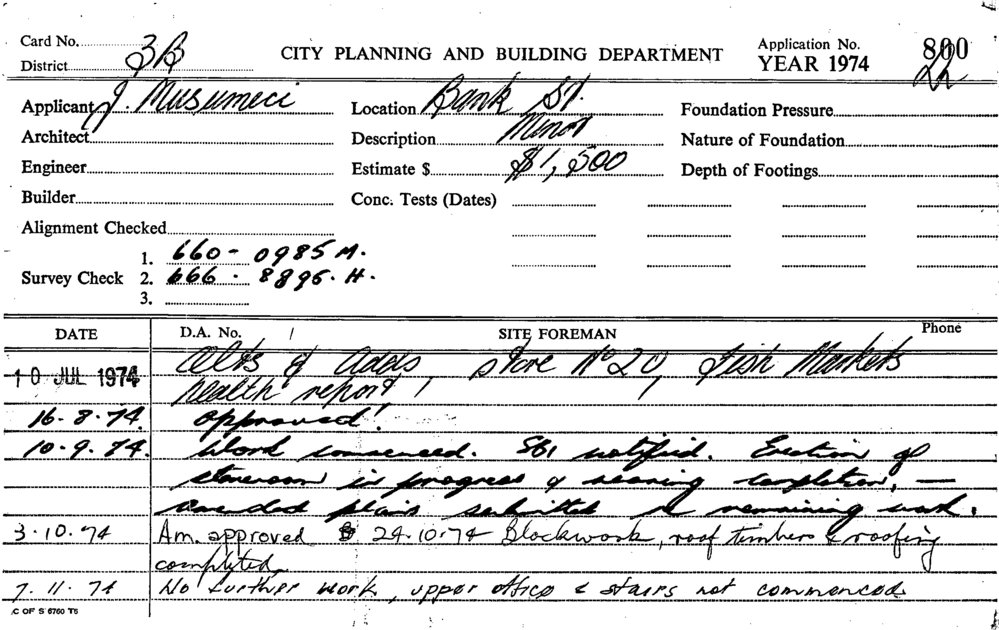 Card No. 3B
District
CITY PLANNING AND BUILDING DEPARTMENT
Application No. 800
YEAR 1974 22
Applicant J. Musumeci
Location Bank St.
Foundation Pressure
Architect
Description Minor
Nature of Foundation
Engineer
Estimate $ $1,500
Depth of Footings
Builder
Conc. Tests (Dates)
Alignment Checked
1. 660-0985 M.
Survey Check 2. 666. 8895. H.
3.
DATE D.A. No. / SITE FOREMAN Phone
10 JUL 1974 Alts & Adds, store No 20, Fish Markets
health report,
16-8-74. approved!
10-9.74. Work commenced. SBI notified. Erection of
storeroom in progress & nearing completion, —
amended plans submitted re remaining work.
3-10.74 Am. approved 24-10-74 Blockwork, roof timbers & roofing
completed.
7.11.74 No further work, upper office & stairs not commenced.
C OF S 6760 T6